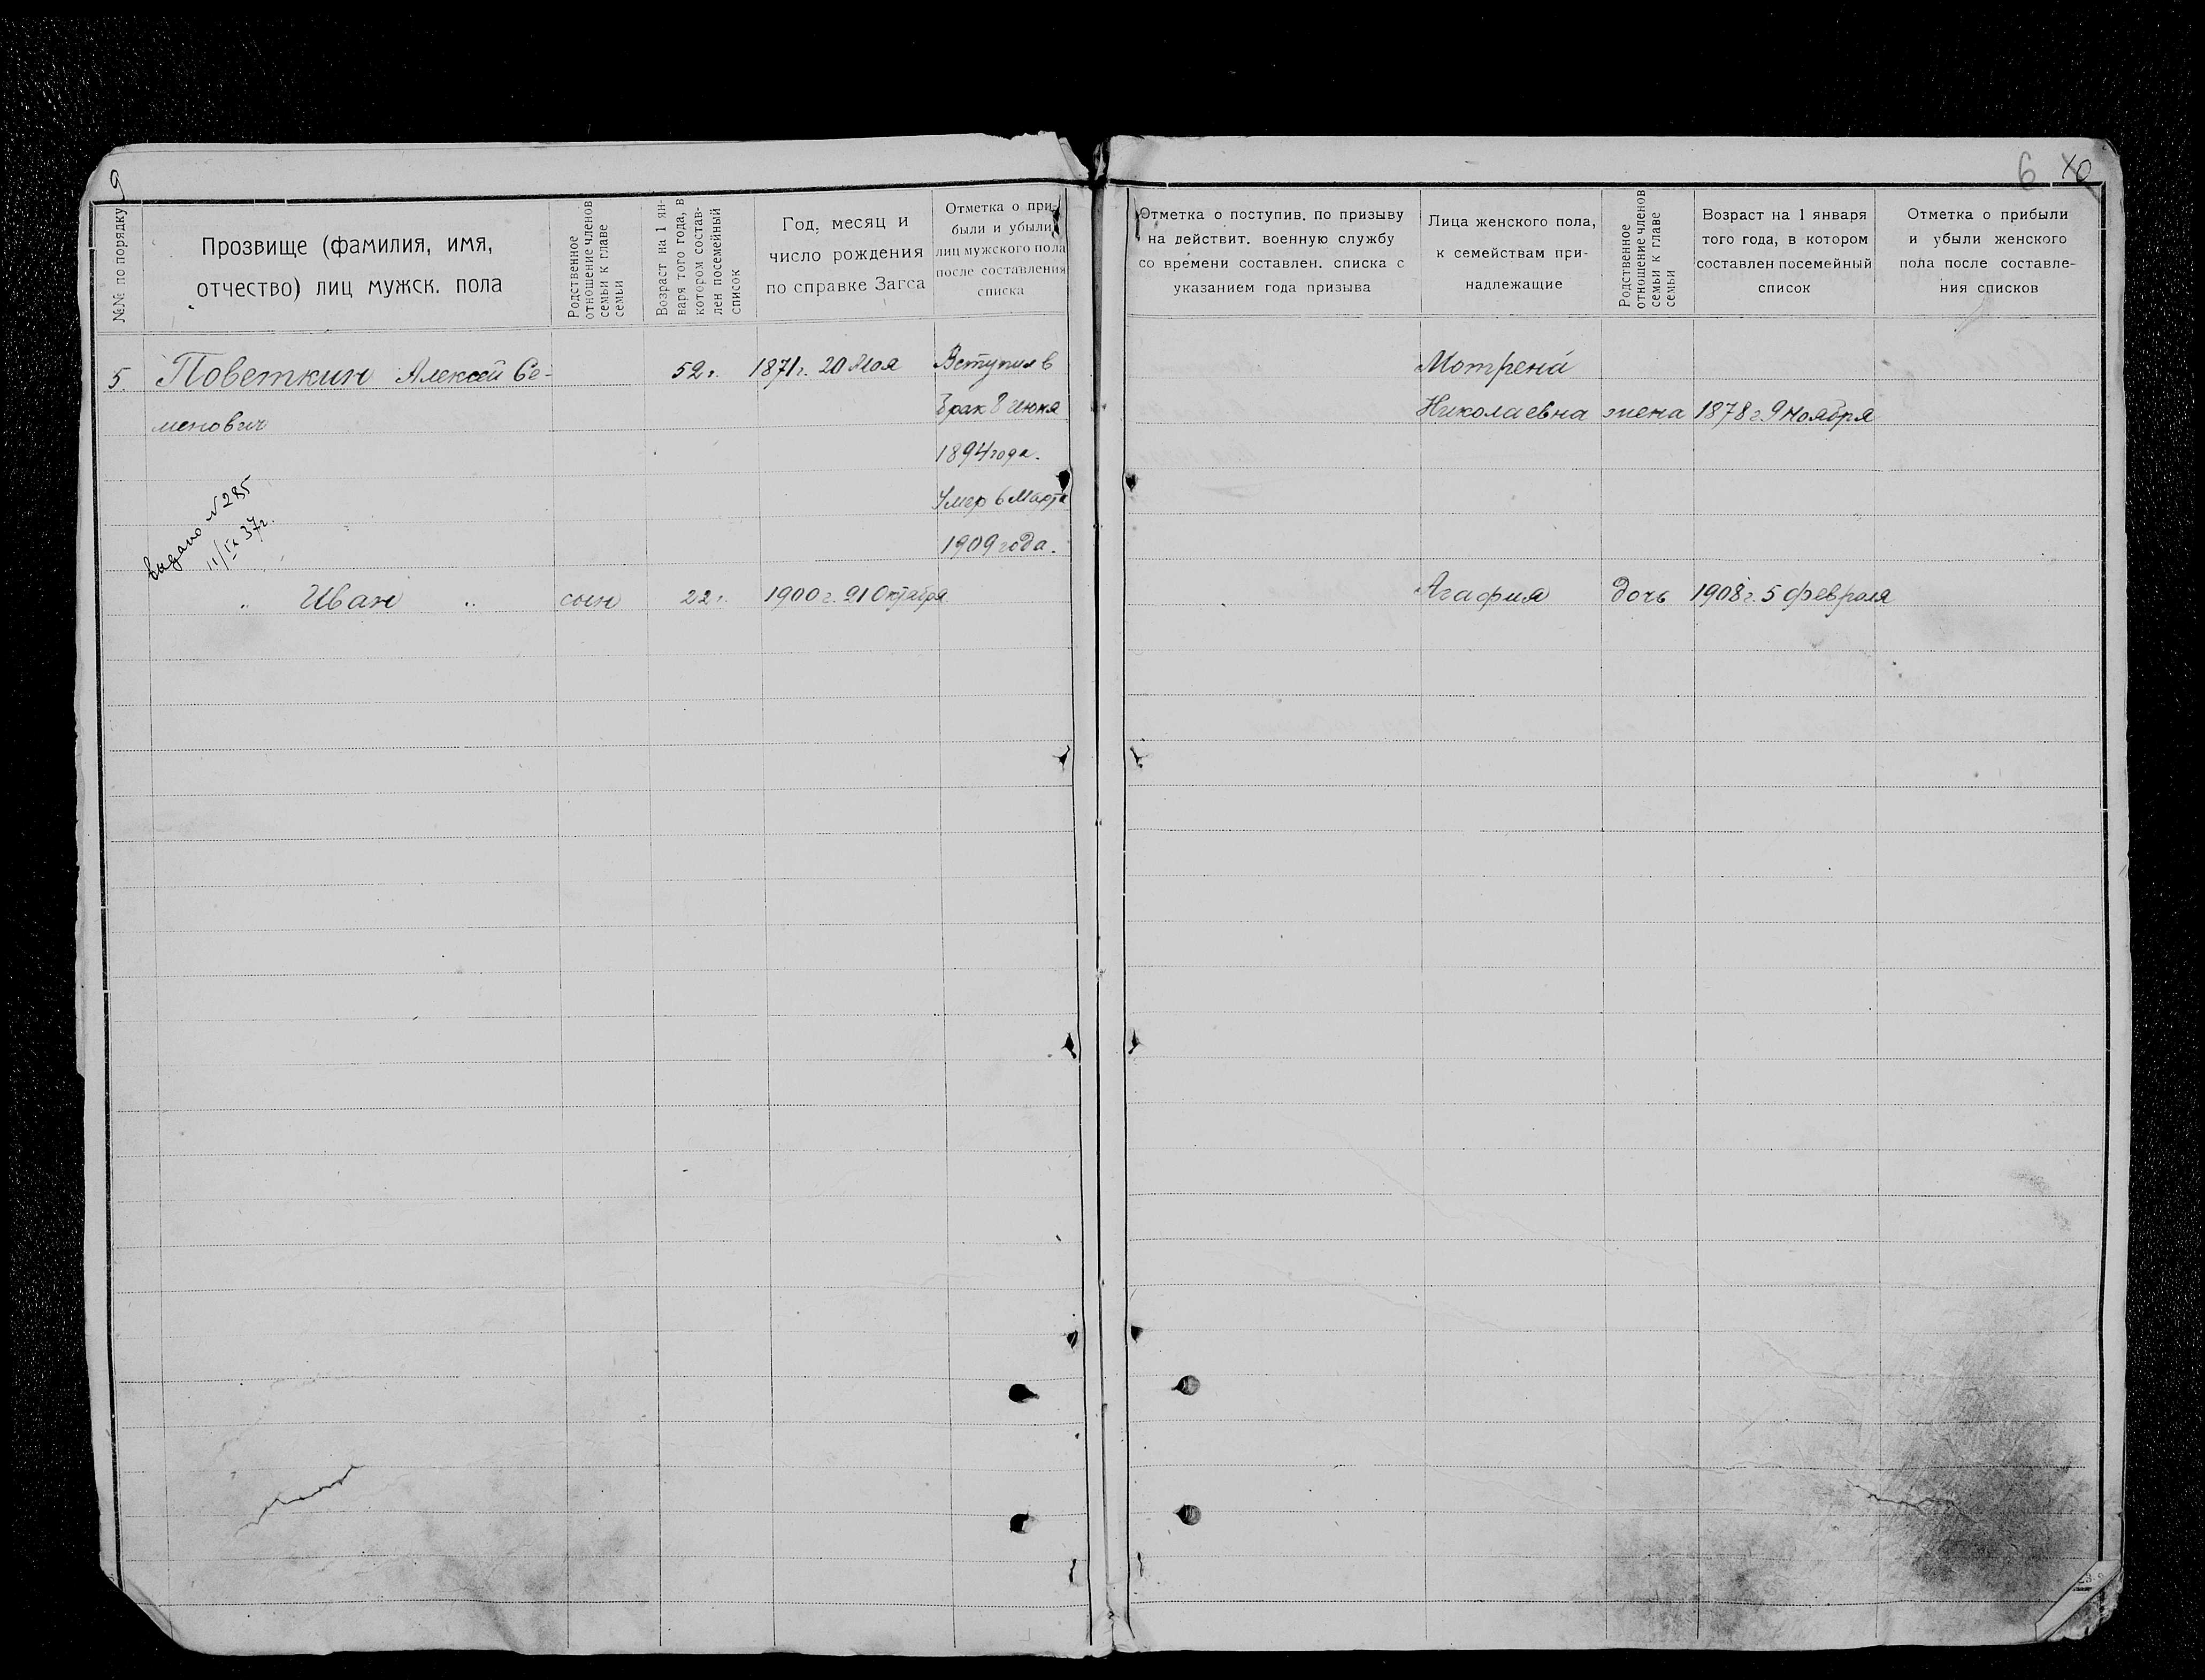 9
6 10
№№ по порядку
Прозвище (фамилия, имя,
отчество) лиц мужск. пола
Родственное
отношение членов
семьи к главе
семьи
Возраст на 1 ян-
варя того года, в
котором состав-
лен посемейный
список
Год, месяц и
число рождения
по справке Загса
Отметка о при-
были и убыли
лиц мужского пола
после составления
списка
Отметка о поступив. по призыву
на действит. военную службу
со времени составлен. списка с
указанием года призыва
Лица женского пола,
к семействам при-
надлежащие
Родственное
отношение членов
семьи к главе
семьи
Возраст на 1 января
того года, в котором
составлен посемейный
список
Отметка о прибыли
и убыли женского
пола после составле-
ния списков
5 Поветкин Алексей Се- 52 г. 1871 г. 20 Мая Вступил в Мотрена
менович брак 8 июня Николаевна жена 1878 г 9 Ноября
1894 года.
Умер 6 Марта
1909 года.
выдано №285
11/IX 37г.
" Иван " сын 22 г. 1900 г. 21 Октября Агафия дочь 1908 г. 5 февраля